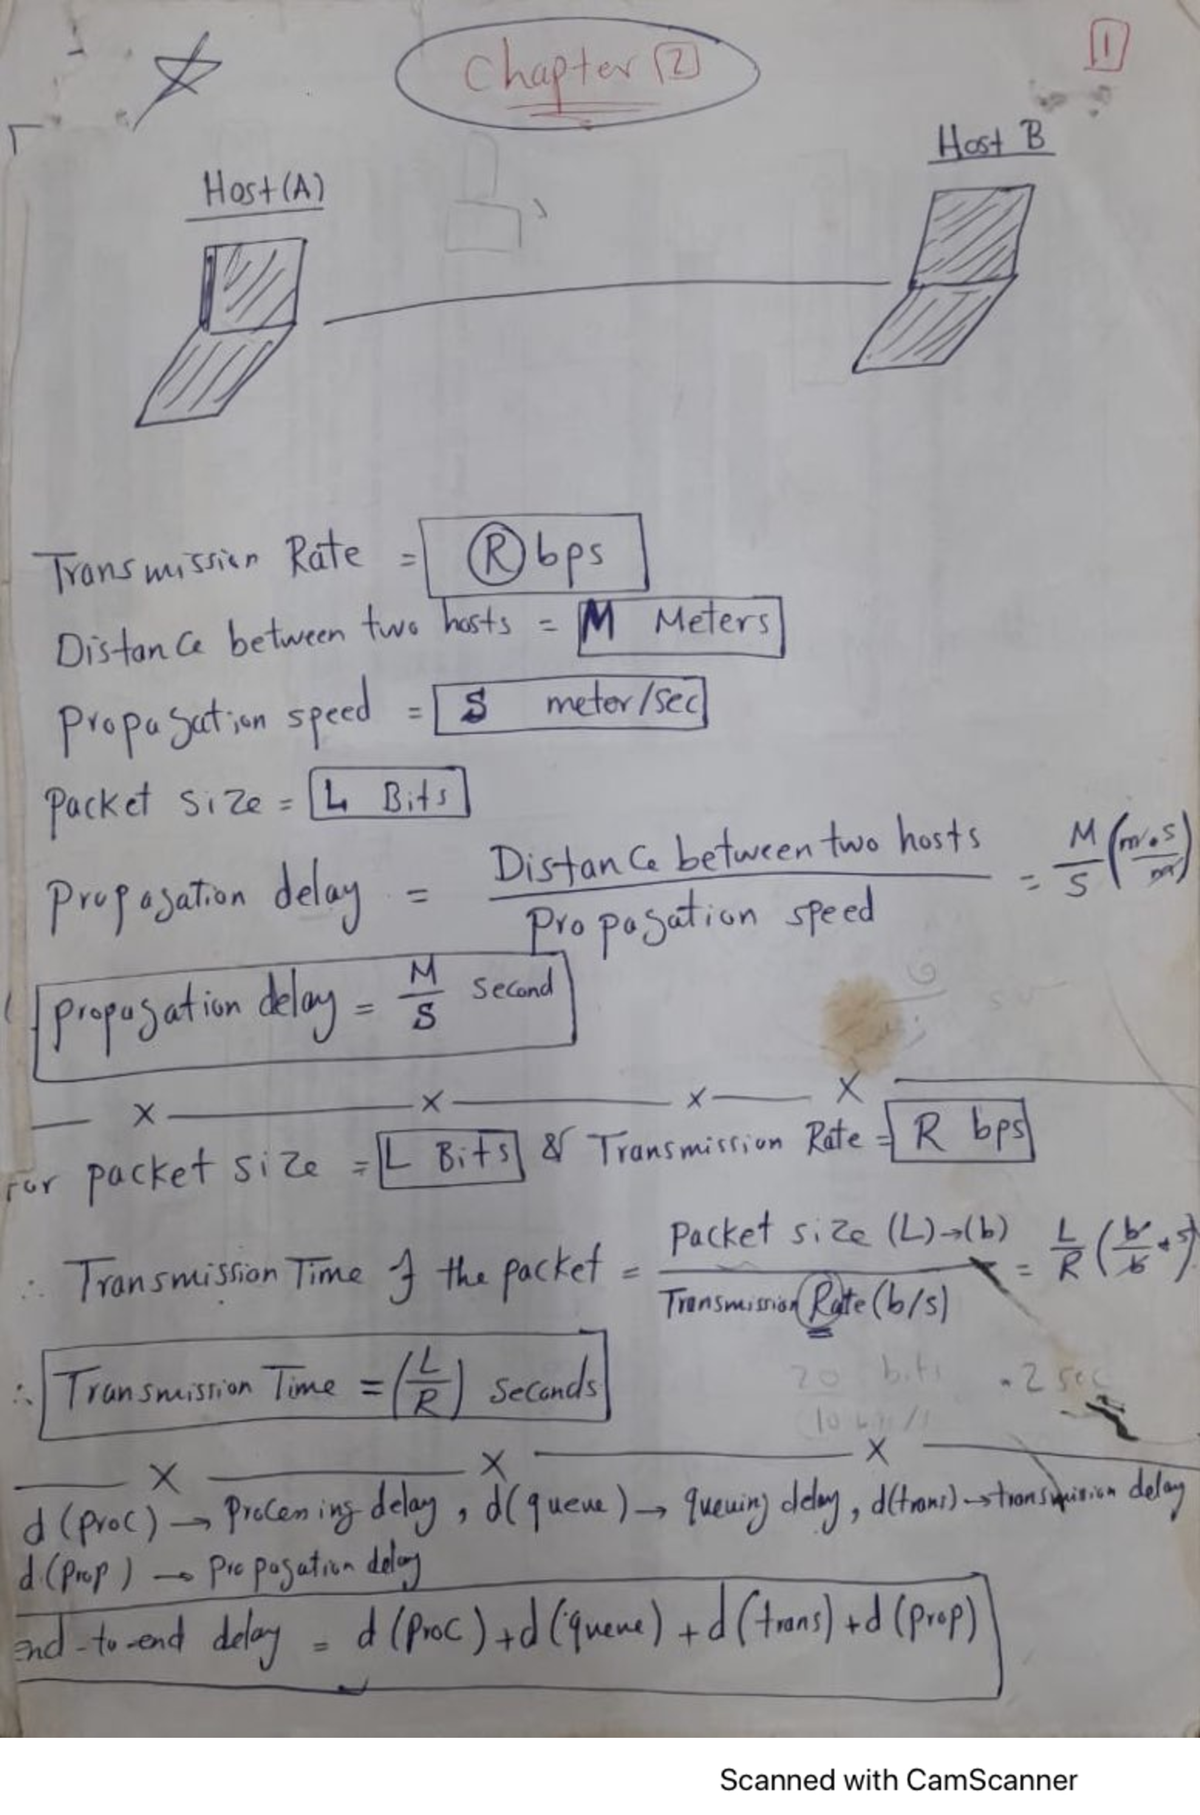 Chapter 2
1
Host B
Host (A)
Transmission Rate = R bps
Distance between two hosts = M Meters
Propagation speed = S meter/sec
Packet size = L Bits
Propagation delay = Distance between two hosts / Propagation speed = M/S (m.s/m)
Propagation delay = M/S second
For packet size = L Bits & Transmission Rate = R bps
∴ Transmission Time of the packet = Packet size (L)→(b) / Transmission Rate (b/s) = L/R (b/b * s)
∴ Transmission Time = (L/R) seconds
20 bits .2 sec
d(proc) → Processing delay, d(queue) → queuing delay, d(trans) → transmission delay
d(prop) → Propagation delay
end-to-end delay = d(proc) + d(queue) + d(trans) + d(prop)
Scanned with CamScanner